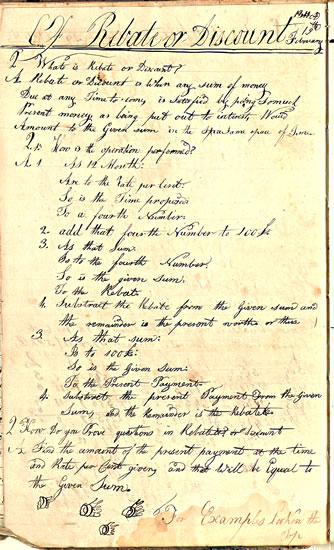 Of Rebate or Discount
February
Q What is Rebate or Discount?
A Rebate or Discount is when any sum of money
Due at any Time to come, is satisfied by paying so much
Present money as being put out to interest, Would
Amount to the Given sum in the same space of Time.
Q 2. How is the operation performed?
A 1 As 12 Month:
Are to the rate per Cent.
So is the Time proposed
To a fourth Number:
2 add that fourth Number to 100£
3. As that Sum.
Is to the fourth Number
So is the given sum.
To the Rebate
4. Substract the Rebate from the Given sum and
the remainder is the present worth or thus
3. As that sum:
Is to 100£:
So is the Given Sum:
To the Present Payment-
4. Substract the present Payment from the Given
Sum, and the Remainder is the Rebate-
Q How Do you Prove questions in Rebate or Discount
A Find the amount of the present payment at the time
and Rate per Cent given, and that will be Equal to
the Given Sum.
For Examples Look in the